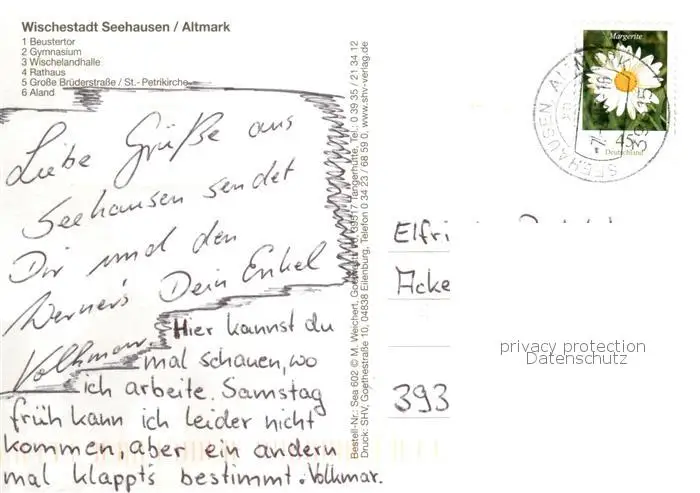 Wischestadt Seehausen / Altmark
1 Beustertor
2 Gymnasium
3 Wischelandhalle
4 Rathaus
5 Große Brüderstraße / St.- Petrikirche
6 Aland
Liebe Grüße aus
Seehausen sendet
Dir und den
Werner's Dein Enkel
Volkmar.
Hier kannst du
mal schauen, wo
ich arbeite. Samstag
früh kann ich leider nicht
kommen, aber ein andern
mal klappt's bestimmt. Volkmar.
Bestell-Nr.: Sea 602 © M. Weichert, 39517 Tangerhütte, Tel.: 0 39 35 / 21 34 12
Druck: SHV, Goethestraße 10, 04838 Eilenburg, Telefon 0 34 23 / 68 59 0, www.shv-verlag.de
Margerite
45
Deutschland
SEEHAUSEN, ALTMARK
Elfri
Acke
393
privacy protection
Datenschutz